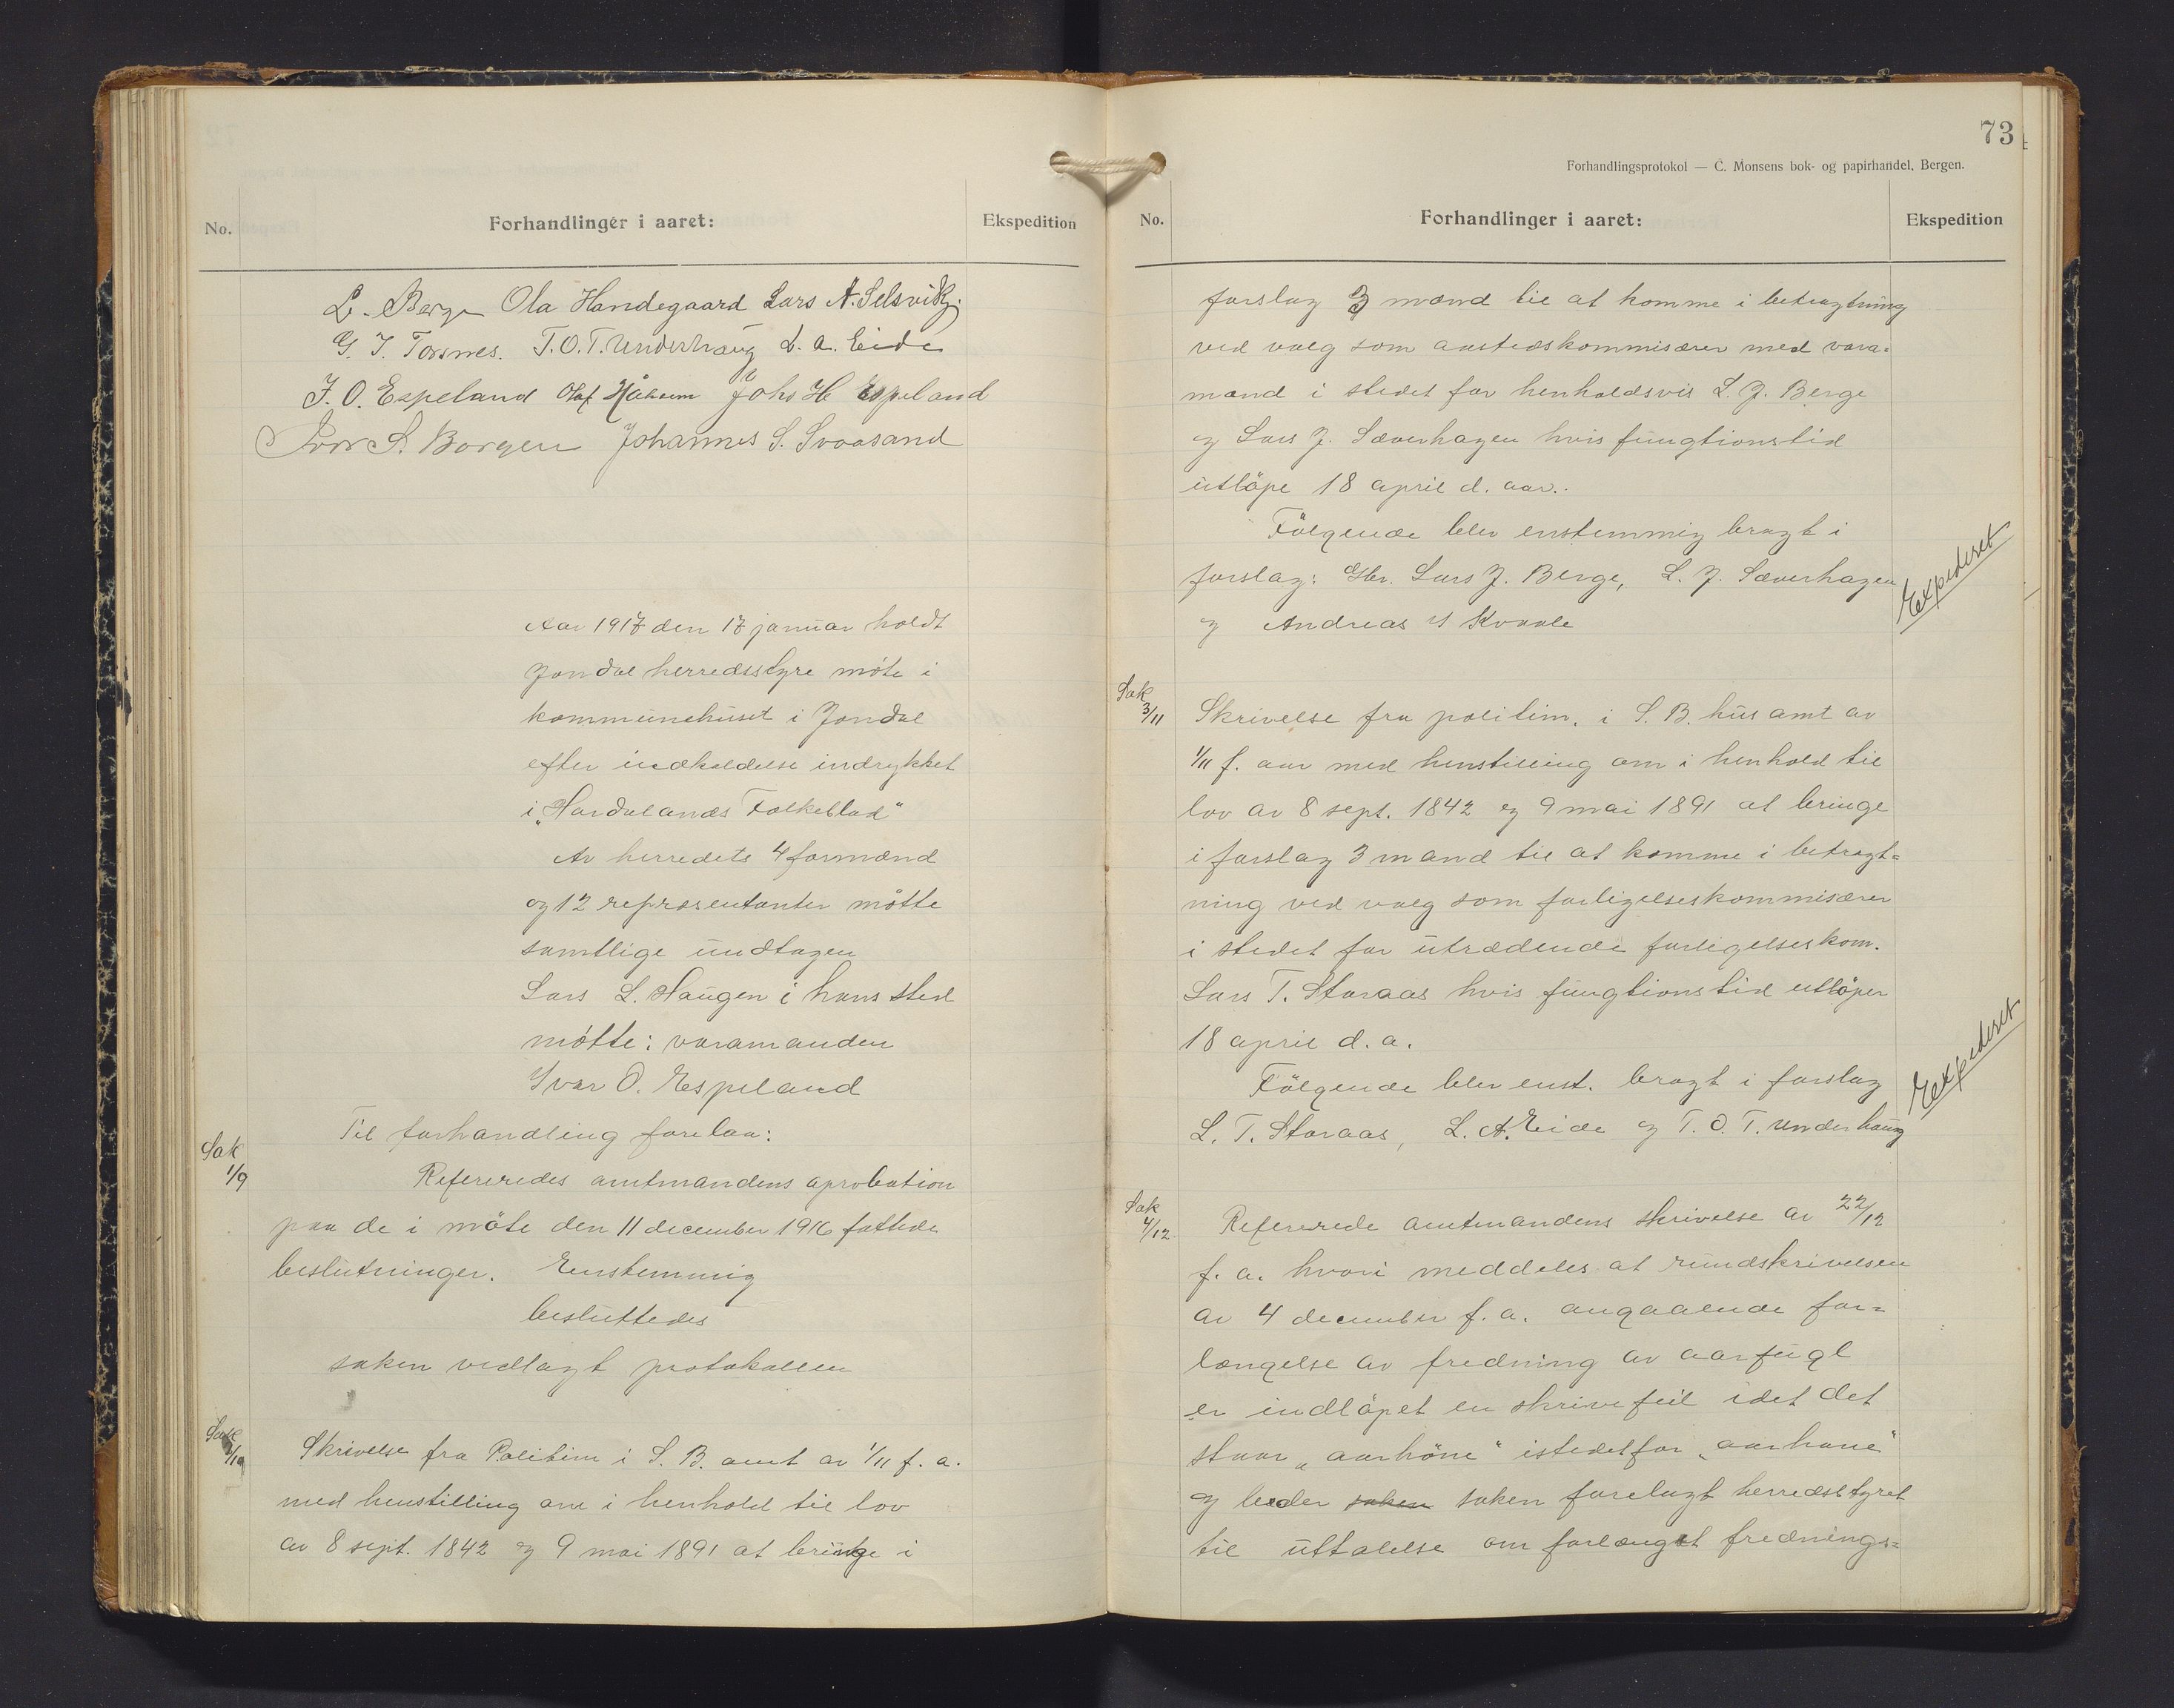 No.
Forhandlinger i aaret:
Ekspedition
L. Berge Ola Handegaard Lars A. Selsvik
G. J. Torsnes. T. O. T. Underhaug L. A. Eide
J. O. Espeland Olaf Håheim Johs H Espeland
S. Borgen Johannes S. Svaasand
Aar 1917 den 17 januar holdt
Jondal herredsstyre möte i
kommunehuset i Jondal
efter indkaldelse indrykket
i „Hardalands Folkeblad"
Av herredets 4 formænd
og 12 repræsentanter mötte
samtlige undtagen
Lars L. Haugen i hans sted
mötte: varamanden
Ivar O. Espeland
Til forhandling forelaa:
Sak
1/9
Refereredes amtmandens aprobation
paa de i möte den 11 december 1916 fattede
beslutninger. Enstemmig
besluttedes
saken vedlagt protokollen
Sak
2/10
Skrivelse fra Politim i S. B. amt av 1/11 f. a.
med henstilling om i henhold til lov
av 8 sept. 1842 og 9 mai 1891 at bringe i
73
Forhandlingsprotokol — C. Monsens bok- og papirhandel, Bergen.
No.
Forhandlinger i aaret:
Ekspedition
forslag 3 mænd til at komme i betragtning
ved valg som aastedskommisærer med vara-
mænd i stedet for henholdsvis L. J. Berge
og Lars J. Sæverhagen hvis fungtionstid
utlöpe 18 april d. aar.
Fölgende blev enstemmig bragt i
forslag: Hr. Lars J. Berge, L. J. Sæverhagen
og Andreas Kvaale
Expederet
Sak
3/11
Skrivelse fra politim. i S. B. hus amt av
1/11 f. aar med henstilling om i henhold til
lov av 8 sept. 1842 og 9 mai 1891 at bringe
i forslag 3 mand til at komme i betragt-
ning ved valg som forligelseskommisærer
i stedet for utrædende forligelseskom.
Lars T. Storaas hvis fungtionstid utlöper
18 april d. a.
Fölgende blev enst. bragt i forslag
L. T. Storaas, L. A. Eide og T. O. T. Underhaug
Expederet
Sak
4/12
Refererede amtmandens skrivelse av 22/12
f. a. hvori meddeles at rundskrivelsen
av 4 december f. a. angaaende for-
længelse av fredning av aarfugl
er indlöpet en skrivefeil idet det
staar „aarhöne" istedetfor „aarhane"
og beder saken saken forelagt herredsstyret
til uttalelse om forlænget frednings-